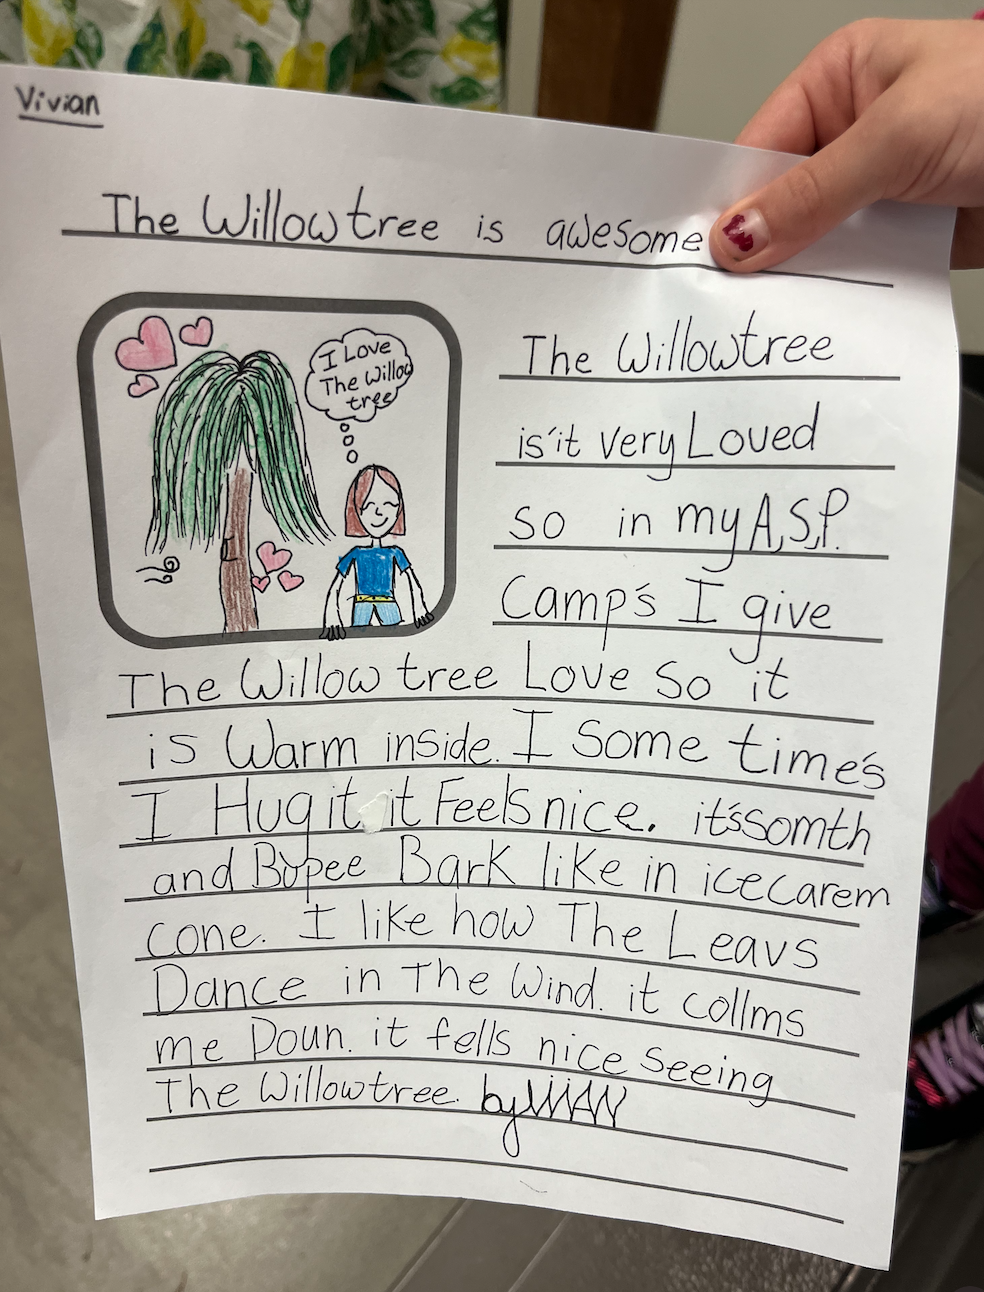 Vivian
The Willow tree is awesome
I Love
The Willow
tree
The Willowtree
is'it very Loved
so in my A,S,P.
Camp's I give
The Willow tree Love so it
is Warm inside. I Some time's
I Hug it it Feels nice. it's somth
and Bupee Bark like in icecarem
cone. I like how The Leavs
Dance in The Wind. it collms
me Doun. it fells nice seeing
The Willowtree. by ViViAN